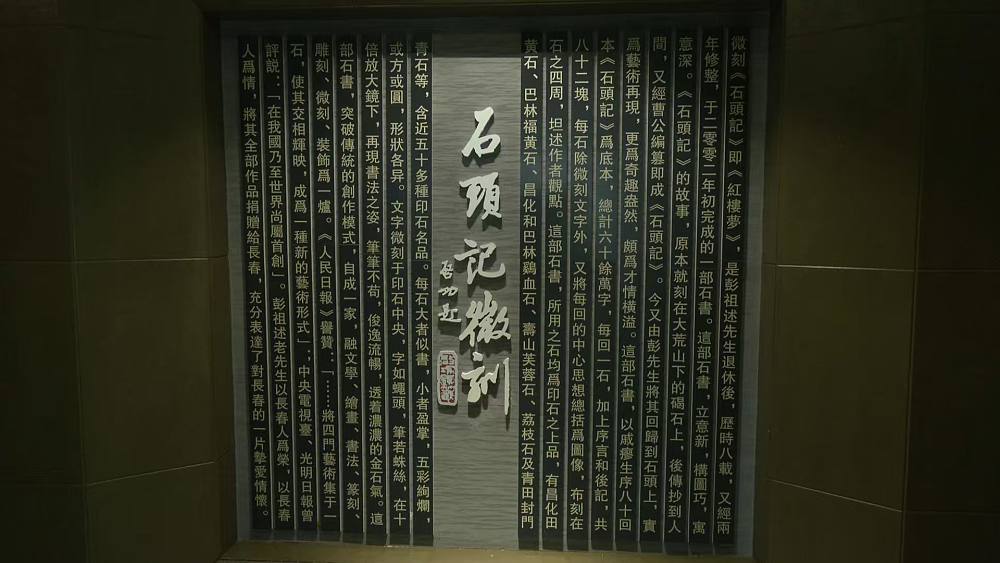 微刻《石頭記》即《紅樓夢》，是彭祖述先生退休後，歷時八載，又經兩
年修整，于二零零二年初完成的一部石書。這部石書，立意新，構圖巧，寓
意深。《石頭記》的故事，原本就刻在大荒山下的碣石上，後傳抄到人
間，又經曹公編篡即成《石頭記》。今又由彭先生將其回歸到石頭上，實
爲藝術再現，更爲奇趣盎然，頗爲才情橫溢。這部石書，以戚瘳生序八十回
本《石頭記》爲底本，總計六十餘萬字，每回一石，加上序言和後記，共
八十二塊，每石除微刻文字外，又將每回的中心思想總括爲圖像，布刻在
石之四周，坦述作者觀點。這部石書，所用之石均爲印石之上品，有昌化田
黃石、巴林福黃石、昌化和巴林鷄血石、壽山芙蓉石、荔枝石及青田封門
石頭記微刻
啓功題
青石等，含近五十多種印石名品。每石大者似書，小者盈掌，五彩絢爛，
或方或圓，形狀各异。文字微刻于印石中央，字如蠅頭，筆若蛛絲，在十
倍放大鏡下，再現書法之姿，筆筆不苟，俊逸流暢，透着濃濃的金石氣。這
部石書，突破傳統的創作模式，自成一家，融文學、繪畫、書法、篆刻、
雕刻、微刻、裝飾爲一爐。《人民日報》譽贊：「……將四門藝術集于一
石，使其交相輝映，成爲一種新的藝術形式」；中央電視臺、光明日報曾
評説：「在我國乃至世界尚屬首創」。彭祖述老先生以長春人爲榮，以長春
人爲情，將其全部作品捐贈給長春，充分表達了對長春的一片摯愛情懷。